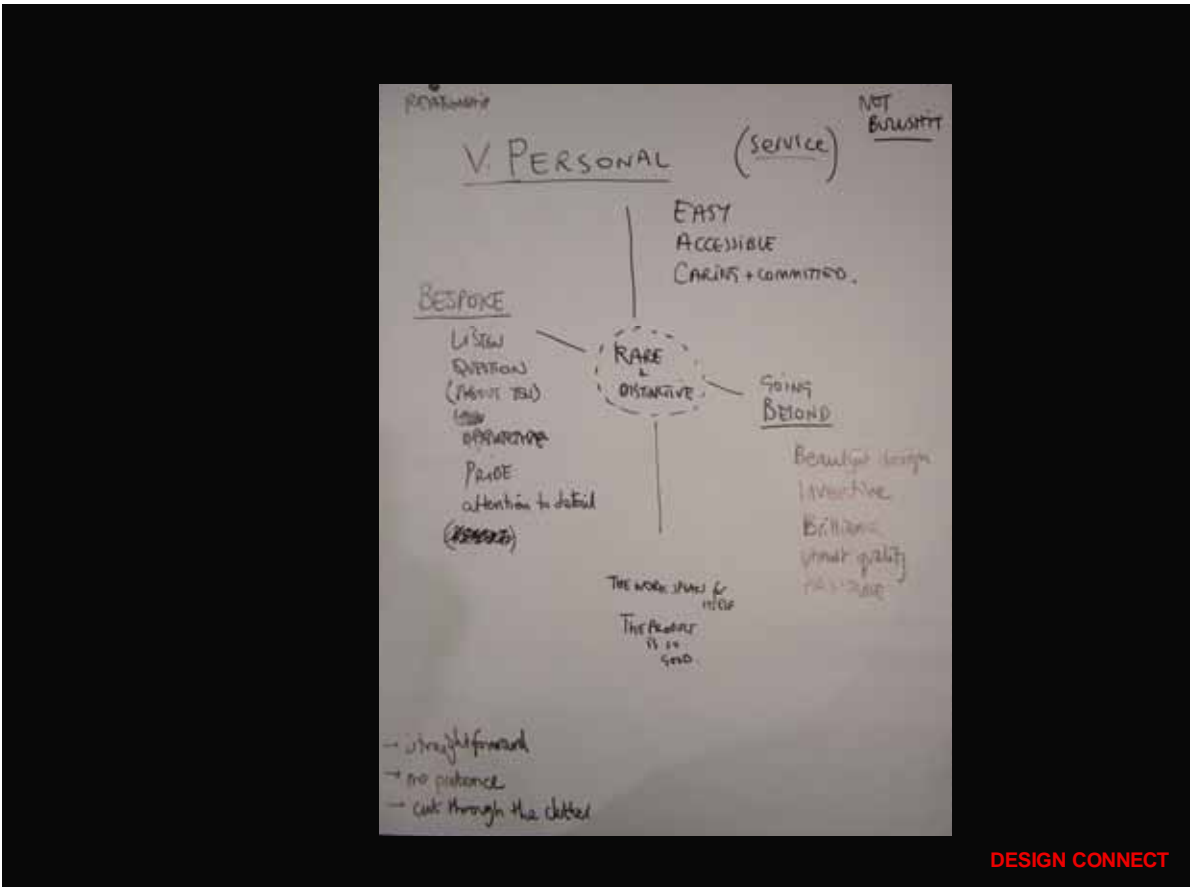 NOT
BULLSHIT
V. PERSONAL
(SERVICE)
EASY
ACCESSIBLE
CARING + COMMITTED.
BESPOKE
LISTEN
QUESTION
(ABOUT YOU)
PRIDE
attention to detail
RARE
&
DISTINCTIVE
GOING
BEYOND
Beautiful design
Inventive
Brilliance
utmost quality
THE WORK SPEAKS for
ITSELF
THE PRODUCT
IS SO
GOOD
→ straightforward
→ no patience
→ cut through the clutter
DESIGN CONNECT